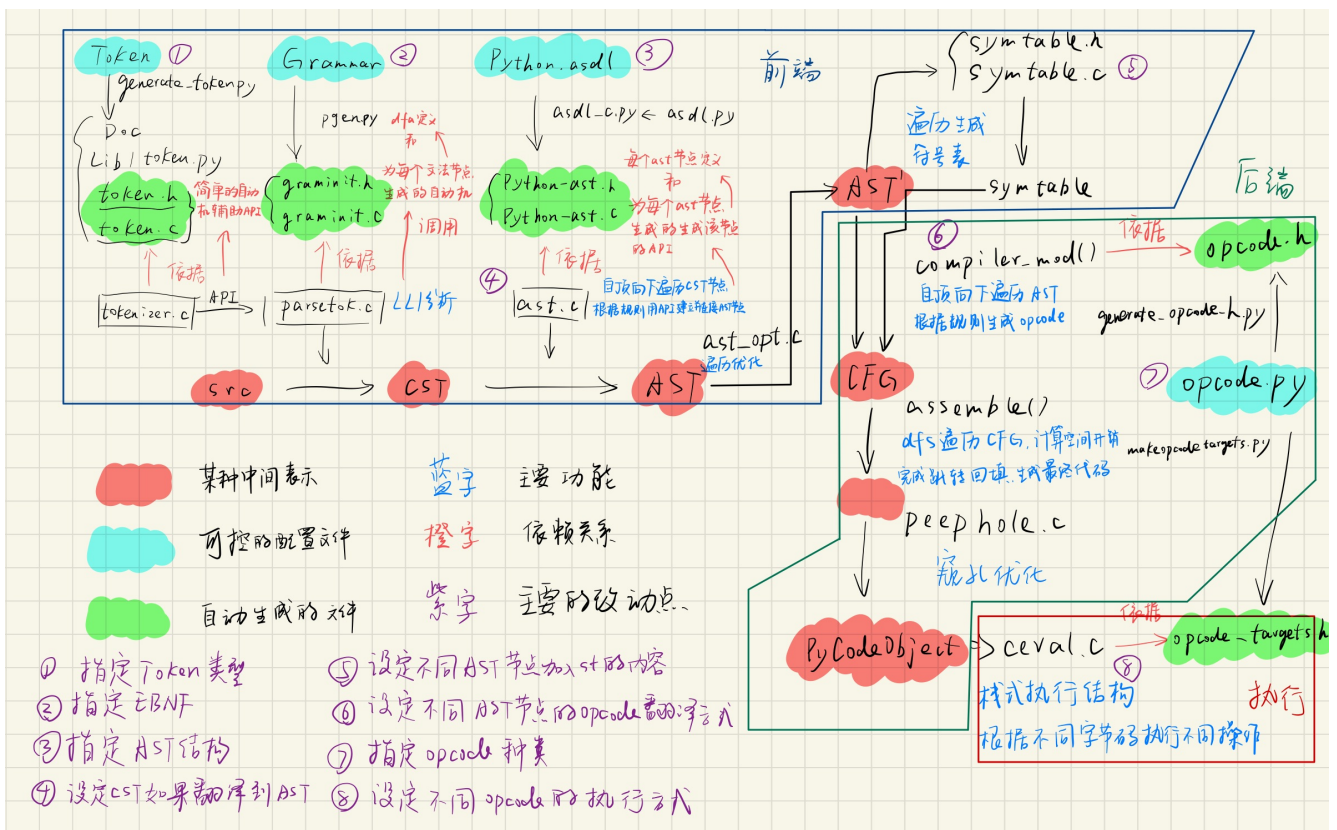 Token ①
generate_token.py
Doc
Lib / token.py
token.h
token.c
简单的自动
机辅助API
依据
tokenizer.c
API
Grammar ②
pgen.py
dfa定义
和
为每个文法节点
生成的自动机
graminit.h
graminit.c
调用
依据
parsetok.c
LL1分析
Python.asdl ③
asdl_c.py ← asdl.py
每个ast节点定义
和
为每个ast节点
生成的生成该节点
的API
Python-ast.h
Python-ast.c
依据
④
ast.c
自顶向下遍历CST节点
根据规则用API建立并链接AST节点
src
CST
AST
ast_opt.c
遍历优化
前端
symtable.h
symtable.c ⑤
遍历生成
符号表
AST'
symtable
后端
⑥
compiler_mod()
依据
opcode.h
自顶向下遍历 AST
根据规则生成opcode
generate_opcode_h.py
⑦ opcode.py
CFG
assemble()
dfs遍历CFG,计算空间开销
完成跳转回填.生成最终代码
makeopcodetargets.py
peephole.c
窥孔优化
PyCodeObject
ceval.c
依据
opcode_targets.h
⑧
栈式执行结构
执行
根据不同字节码执行不同操作
某种中间表示
蓝字 主要功能
可控的配置文件
橙字 依赖关系
自动生成的文件
紫字 主要的改动点.
① 指定Token类型
② 指定EBNF
③ 指定AST结构
④ 设定CST如果翻译到AST
⑤ 设定不同AST节点加入st的内容
⑥ 设定不同AST节点的opcode翻译方式
⑦ 指定opcode种类
⑧ 设定不同opcode的执行方式